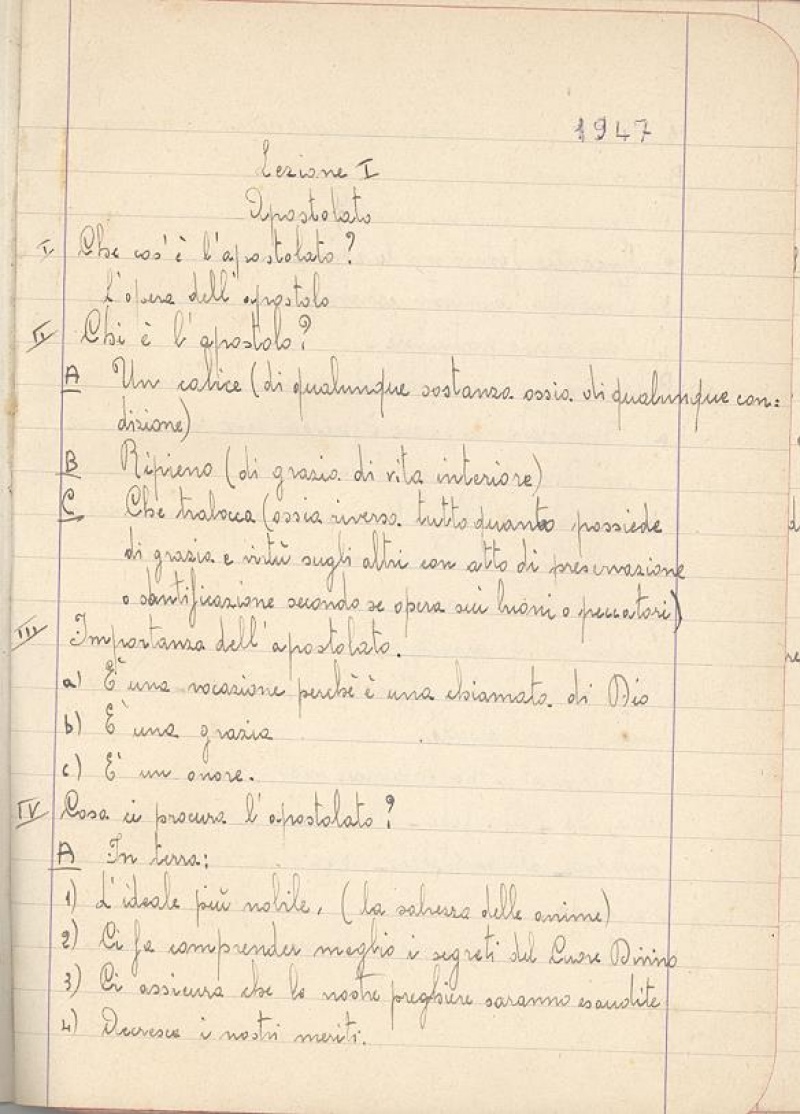 1947
Lezione I
Apostolato
I Che cos'è l'apostolato?
L'opera dell'apostolo
II Chi è l'apostolo?
A Un calice (di qualunque sostanza ossia di qualunque con=
dizione)
B Ripieno (di grazia di vita interiore)
C Che trabocca (ossia riversa tutto quanto possiede
di grazia e virtù sugli altri con atto di preservazione
o santificazione secondo se opera sui buoni o peccatori)
III Importanza dell'apostolato.
a) E' una vocazione perchè è una chiamata di Dio
b) E' una grazia
c) E' un onore.
IV Cosa ci procura l'apostolato?
A In terra:
1) L'ideale più nobile, (la salvezza delle anime)
2) Ci fa comprender meglio i segreti del Cuore Divino
3) Ci assicura che le nostre preghiere saranno esaudite
4) Decresce i nostri meriti.